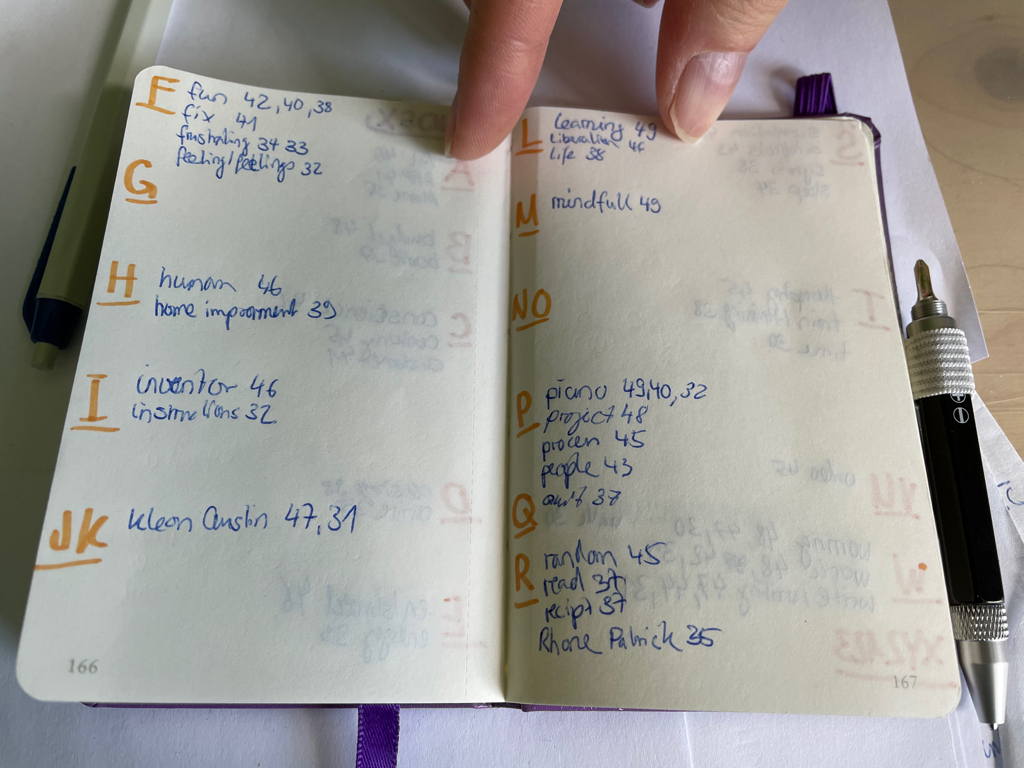 F
fun 42,40,38
fix 41
frustrating 34 33
feeling/feelings 32
G
H
human 46
home imporment 39
I
inventor 46
instructions 32
JK
kleon Austin 47,31
166
L
learning 49
liberation 46
life 38
M
mindfull 49
NO
P
piano 49,40,32
project 48
process 45
people 43
Q
quit 37
R
random 45
read 37
recipt 37
Rhone Patrick 35
167